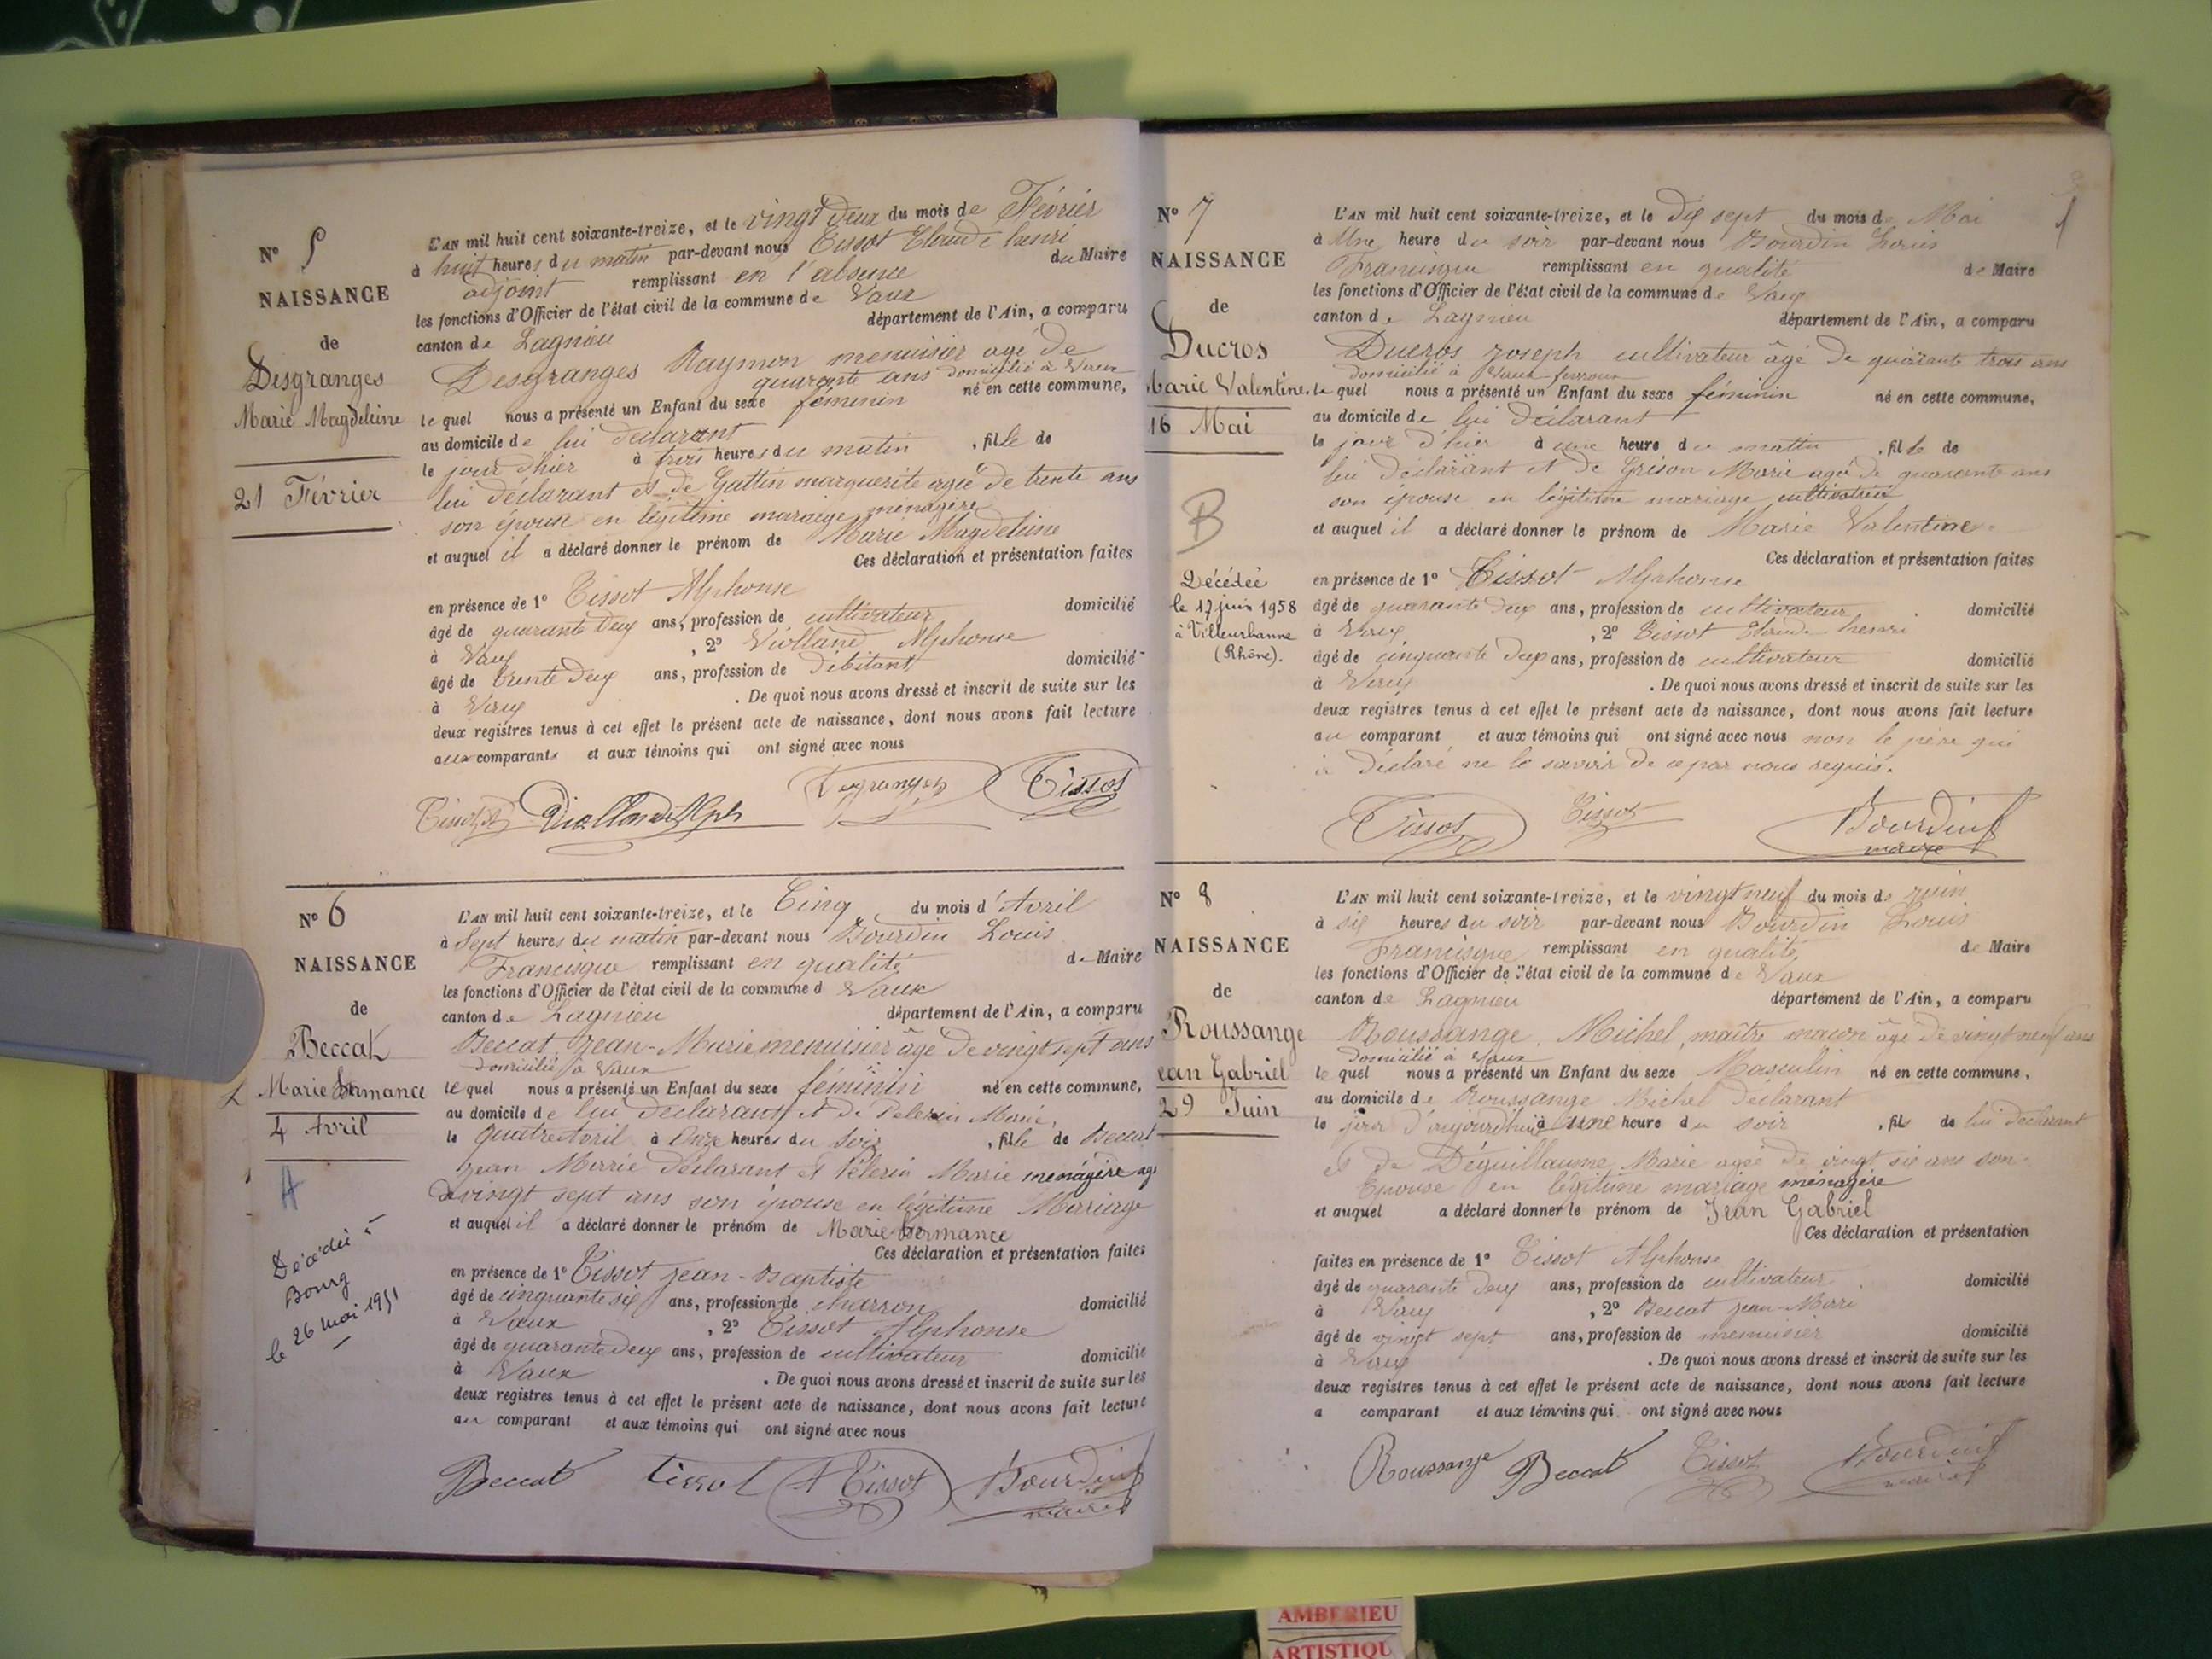 N° 5
NAISSANCE
de
Desgranges
Marie Magdeleine
21 Février
L'AN mil huit cent soixante-treize, et le vingt deux du mois de Février
à huit heures du matin par-devant nous Tissot Claude henri
adjoint remplissant en l'absence du Maire
les fonctions d'Officier de l'état civil de la commune de Vaux
canton de Lagnieu département de l'Ain, a comparu
Desgranges Raymon menuisier agé de
quarante ans domicilié à Vaux
le quel nous a présenté un Enfant du sexe féminin né en cette commune,
au domicile de lui déclarant
le jour d'hier à trois heures du matin , fille de
lui déclarant et de Gattin marguerite agée de trente ans
son épouse en légitime mariage ménagère
et auquel il a déclaré donner le prénom de Marie Magdeleine
Ces déclaration et présentation faites
en présence de 1° Tissot Alphonse
âgé de quarante deux ans, profession de cultivateur domicilié
à Vaux , 2° Violland Alphonse
âgé de trente deux ans, profession de débitant domicilié
à Vaux . De quoi nous avons dressé et inscrit de suite sur les
deux registres tenus à cet effet le présent acte de naissance, dont nous avons fait lecture
aux comparants et aux témoins qui ont signé avec nous
Tissot A Violland Alph Desgranges Tissot
N° 6
NAISSANCE
de
Beccat
Marie Hermance
4 Avril
A
Décédée à
Bourg
le 26 mai 1951
L'AN mil huit cent soixante-treize, et le Cinq du mois d'Avril
à Sept heures du matin par-devant nous Bourdin Louis
Francisque remplissant en qualité de Maire
les fonctions d'Officier de l'état civil de la commune d Vaux
canton de Lagnieu département de l'Ain, a comparu
Beccat Jean-Marie menuisier âgé de vingt sept ans
domicilié à Vaux
le quel nous a présenté un Enfant du sexe féminin né en cette commune,
au domicile de lui déclarant et de Pelerin Marie,
le quatre Avril à Onze heures du soir , fille de Beccat
Jean Marie déclarant et Pélerin Marie menagère agé
de vingt sept ans son épouse en légitime Mariage
et auquel il a déclaré donner le prénom de Marie hermance
Ces déclaration et présentation faites
en présence de 1° Tissot Jean-Baptiste
âgé de cinquante six ans, profession de charron domicilié
à Vaux , 2° Tissot Alphonse
âgé de quarante deux ans, profession de cultivateur domicilié
à Vaux . De quoi nous avons dressé et inscrit de suite sur les
deux registres tenus à cet effet le présent acte de naissance, dont nous avons fait lecture
au comparant et aux témoins qui ont signé avec nous
Beccat Tissot A Tissot Bourdin
maire
N° 7
NAISSANCE
de
Ducros
Marie Valentine.
16 Mai
B
Décédée
le 17 juin 1958
à Villeurbanne
(Rhône).
L'AN mil huit cent soixante-treize, et le Dix sept du mois de Mai
à Une heure du soir par-devant nous Bourdin Louis
Francisque remplissant en qualité de Maire
les fonctions d'Officier de l'état civil de la commune de Vaux
canton de Lagnieu département de l'Ain, a comparu
Ducros Joseph cultivateur âgé de quarante trois ans
domicilié à Vaux
le quel nous a présenté un Enfant du sexe féminin né en cette commune,
au domicile de lui Déclarant
le jour d'hier à une heure du matin , fille de
lui déclarant et de Grison Marie agée de quarante ans
son épouse en légitime mariage cultivatrice
et auquel il a déclaré donner le prénom de Marie Valentine.
Ces déclaration et présentation faites
en présence de 1° Tissot Alphonse
âgé de quarante deux ans, profession de cultivateur domicilié
à Vaux , 2° Tissot Claude henri
âgé de cinquante deux ans, profession de cultivateur domicilié
à Vaux . De quoi nous avons dressé et inscrit de suite sur les
deux registres tenus à cet effet le présent acte de naissance, dont nous avons fait lecture
au comparant et aux témoins qui ont signé avec nous non le père qui
a déclaré ne le savoir de ce par nous requis.
Tissot Tissot Bourdin
maire
N° 8
NAISSANCE
de
Roussange
ean Gabriel
29 Juin
L'AN mil huit cent soixante-treize, et le vingt neuf du mois de juin
à six heures du soir par-devant nous Bourdin Louis
Francisque remplissant en qualité de Maire
les fonctions d'Officier de l'état civil de la commune de Vaux
canton de Lagnieu département de l'Ain, a comparu
Roussange Michel, maître maçon âgé de vingt neuf ans
domicilié à Vaux
le quel nous a présenté un Enfant du sexe Masculin né en cette commune,
au domicile de Roussange Michel déclarant
le jour d'aujourd'hui à une heure du soir , fils de lui déclarant
et de Déguillaume Marie agée de vingt six ans son
Epouse en légitime mariage ménagère
et auquel a déclaré donner le prénom de Jean Gabriel
Ces déclaration et présentation
faites en présence de 1° Tissot Alphonse
âgé de quarante deux ans, profession de cultivateur domicilié
à Vaux , 2° Beccat Jean-Mari
âgé de vingt sept ans, profession de menuisier domicilié
à Vaux . De quoi nous avons dressé et inscrit de suite sur les
deux registres tenus à cet effet le présent acte de naissance, dont nous avons fait lecture
a comparant et aux témoins qui ont signé avec nous
Roussange Beccat Tissot Bourdin
maire
AMBERIEU
ARTISTIQU